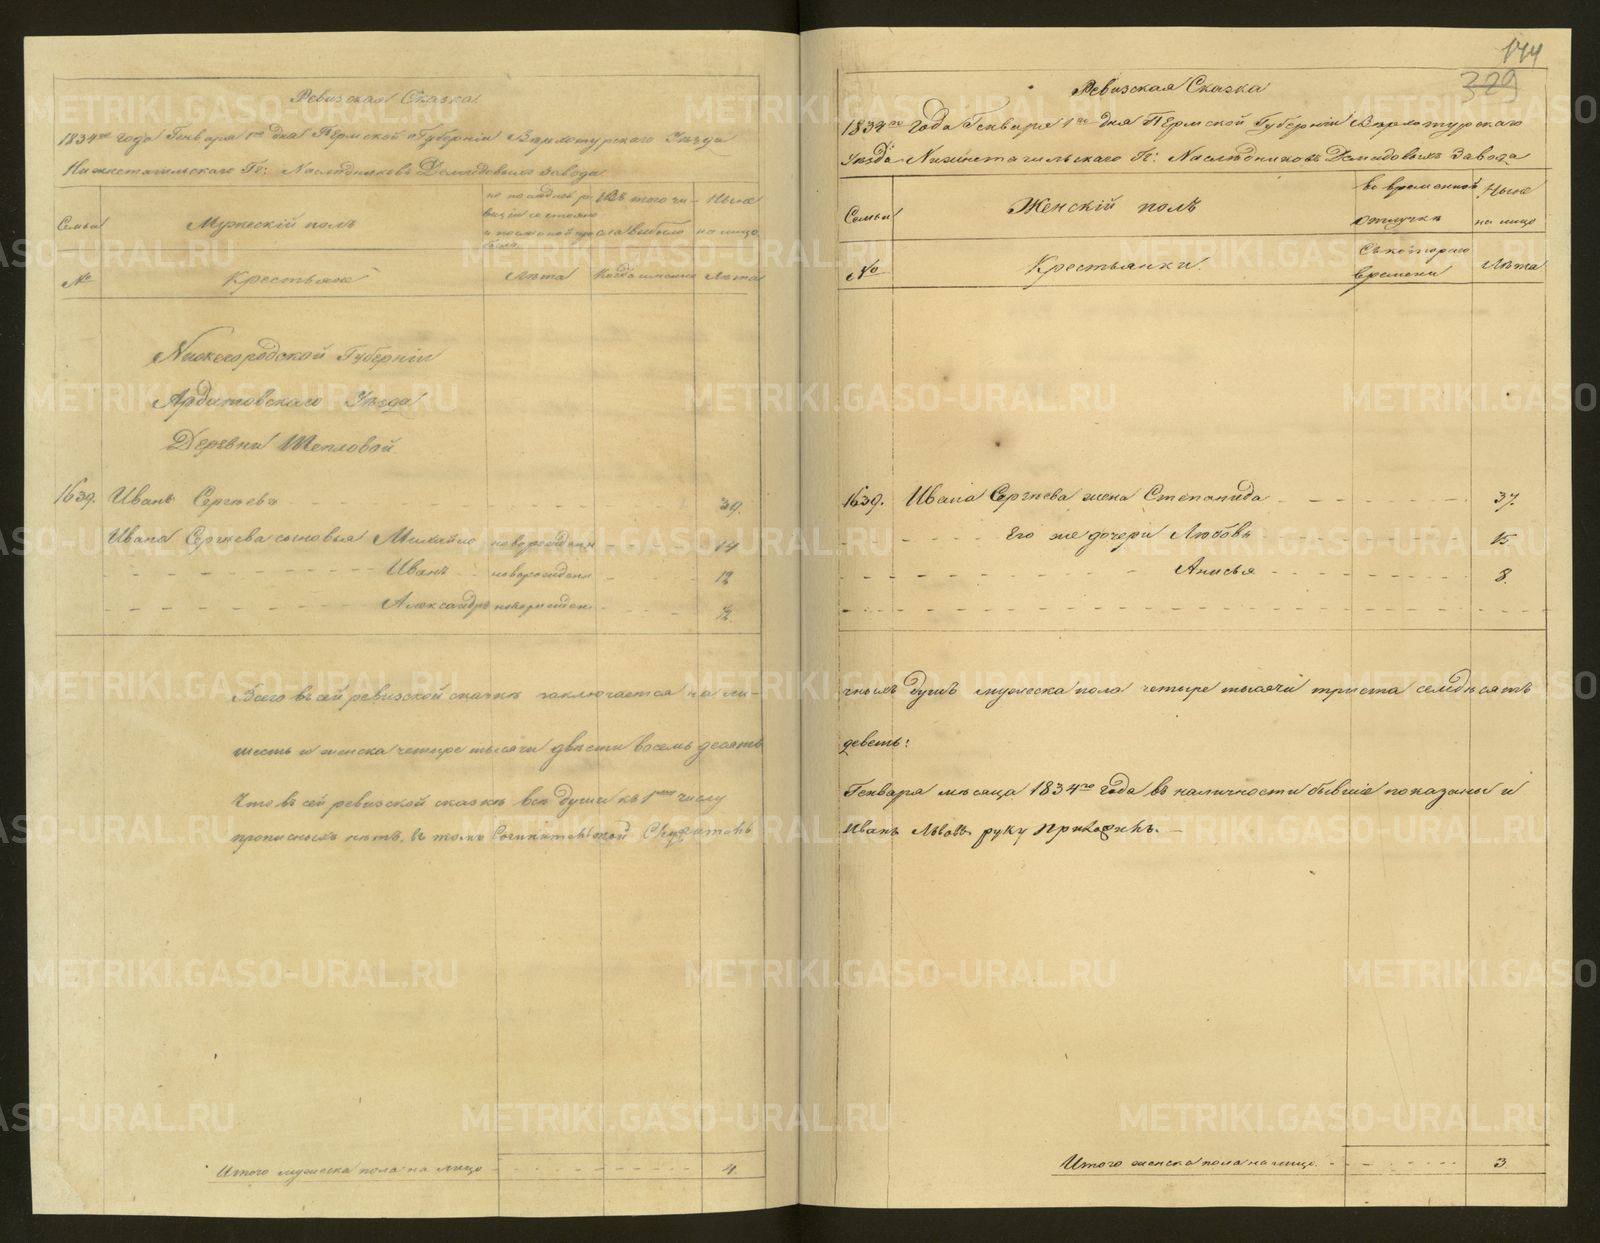 Ревизская Сказка
1834го года Генваря 1го дня Пермской Губерніи Верхотурскаго Уезда
Нижнетагильскаго Гг: Наследниковъ Демидовыхъ завода
Семьи
Мужескій полъ
по последней ревизіи состояло и после оной прибыло
Изъ того числа выбыло
Ныне на лицо
№
Крестьяне
Лѣта
Когда именно
Лѣта
Нижегородской Губерніи
Ардатовскаго Уезда
Деревни Тепловой
1639. Иванъ Сергѣевъ 39.
Ивана Сергѣева сыновья Михайло новорожденъ 14
Иванъ новорожденъ 12
Александръ новорожден
Всего въ сей ревизской сказкѣ заключается на ли-
шесть и женска четыре тысячи двѣсти восемь десятъ
Что въ сей ревизской сказкѣ все души къ 1му числу
прописныхъ нѣтъ, въ томъ
Итого мужеска пола на лицо 4.
144
329
Ревизская Сказка
1834го года Генваря 1го дня Пермской Губерніи Верхотурскаго
Уезда Нижнетагильскаго Гг: Наследниковъ Демидовыхъ Завода
Семьи
Женскій полъ
во временной отлучкѣ
Ныне на лицо
№
Крестьянки.
Съ котораго времени
Лѣта
1639. Ивана Сергѣева жена Степанида 37.
Его же дочери Любовь 15
Анисья 8.
чныхъ душъ мужеска пола четыре тысячи триста семдесятъ
деветь:
Генваря мѣсяца 1834го года въ наличности бывшіе показаны и
Иванъ Львовъ руку приложилъ.
Итого женска пола на лицо. 3.
METRIKI.GASO-URAL.RU